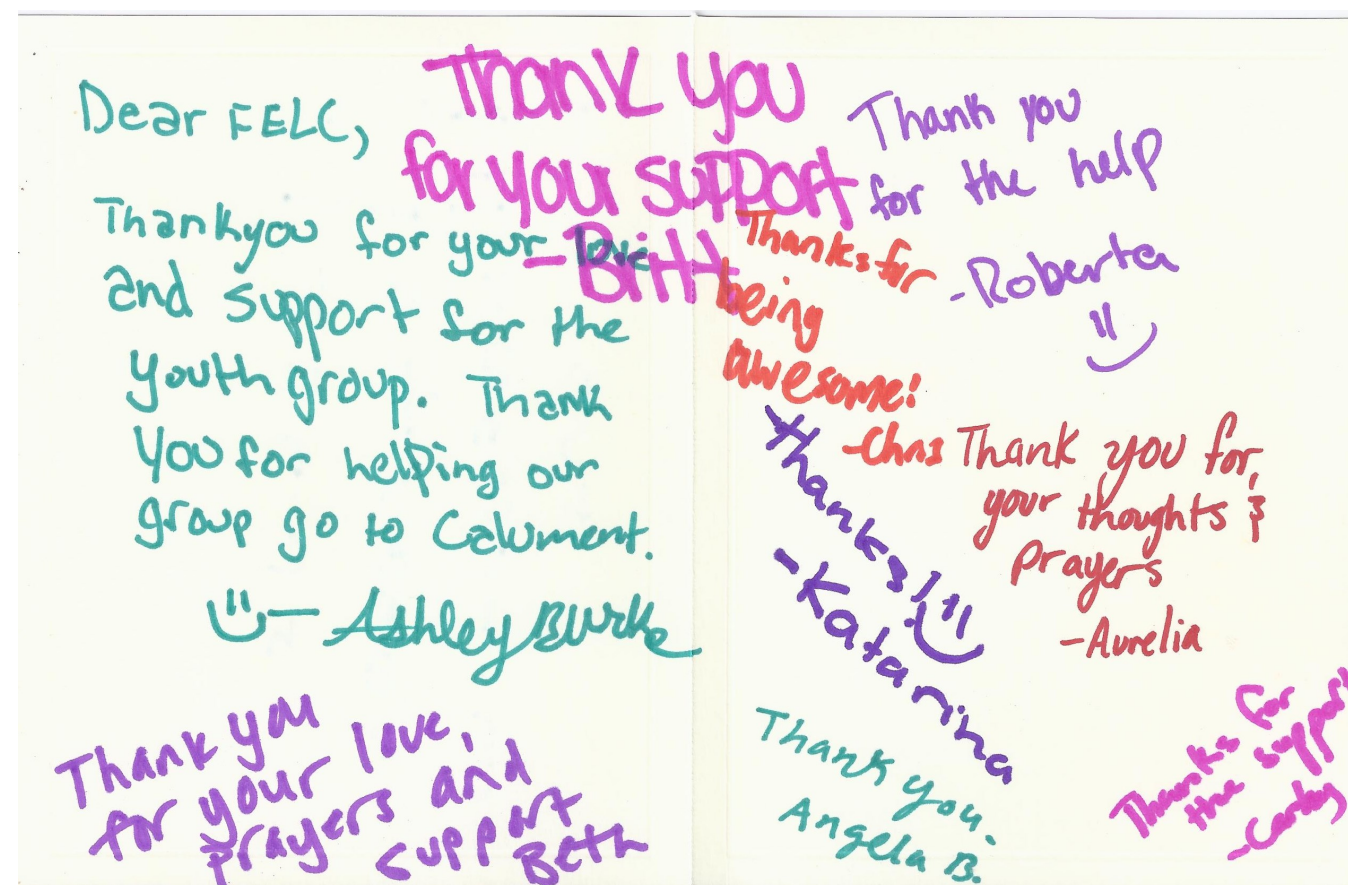 Dear FELC,
Thankyou for your love
and support for the
youth group. Thank
you for helping our
group go to Calument.
— Ashley Burke
Thank you
for your support
- Britt
Thank you
for the help
- Roberta
Thanks for
being
awesome!
- Chris
Thanks!
- Katarina
Thank you for
your thoughts &
prayers
- Aurelia
Thank you
for your love,
prayers and
support
Beth
Thank you.
Angela B.
Thanks for
the support